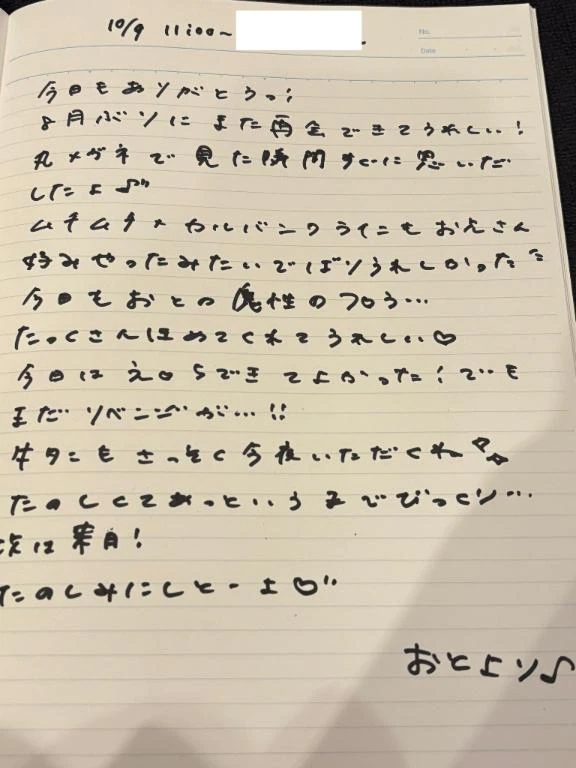 10/9 11:00~
No.
Date
今日もありがとうっ!
8月ぶりにまた再会できてうれしい!
丸メガネで見た瞬間すぐに思いだ
したよ♪
ムチムチ×カルバンクラインもお兄さん
好みやったみたいでばりうれしかった
今日もおとの 性のフロう…
たっくさんほめてくれてうれしい♡
今日は えいらできてよかった!でも
まだリベンジが…!!
牛タンもさっそく今夜いただくね
たのしくてあっというまでびっくり…
次は来月!
たのしみにしとーよ♡
おとより♪